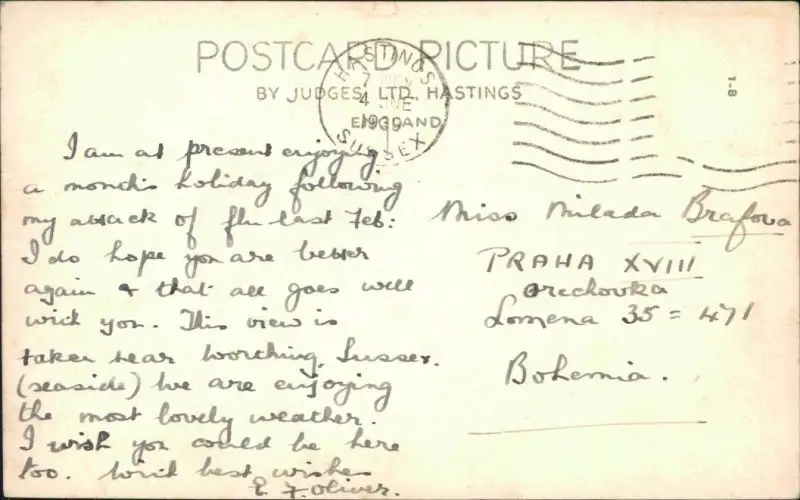 POSTCARD PICTURE
BY JUDGES, LTD., HASTINGS
ENGLAND
HASTINGS
7
4 JNE
1939
SUSSEX
1-8
I am at present enjoying
a month's holiday following
my attack of flu last Feb:
I do hope you are better
again & that all goes well
with you. This view is
taken near Worthing, Sussex.
(seaside) We are enjoying
the most lovely weather.
I wish you could be here
too. With best wishes
E. F. Oliver.
Miss Milada Brafova
PRAHA XVIII
Orechovka
Lomena 35 = 471
Bohemia.